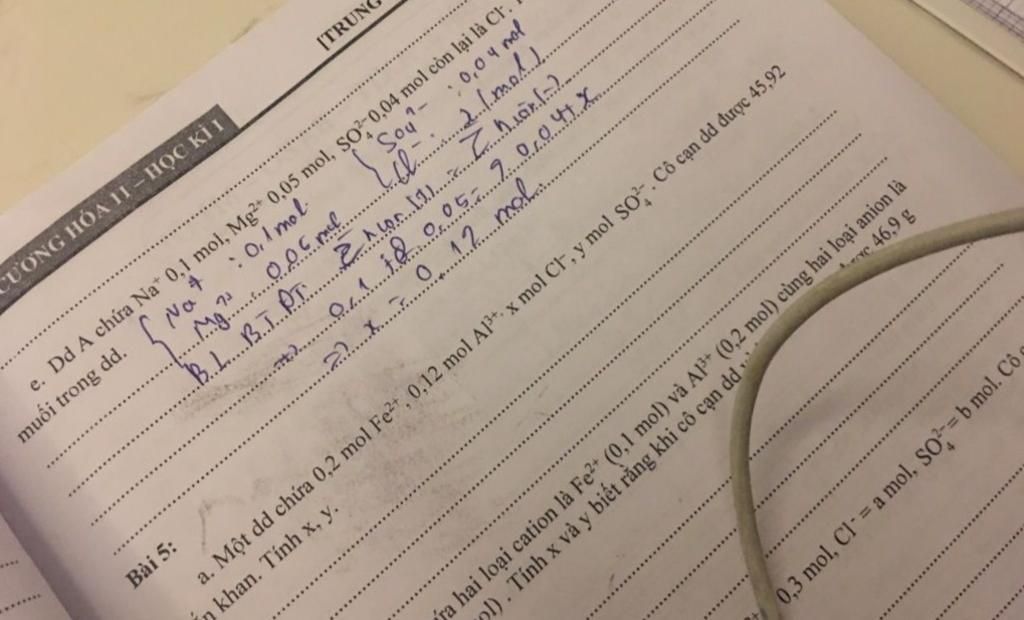 [TRUNG
CƯƠNG HÓA 11 – HỌC KÌ I
e. Dd A chứa Na⁺ 0,1 mol, Mg²⁺ 0,05 mol, SO₄²⁻ 0,04 mol còn lại là Cl⁻.
muối trong dd.
Na⁺ : 0,1 mol
SO₄²⁻ : 0,04 mol
Mg²⁺ : 0,05 mol
Cl⁻ : (mol)
B L B T Đ T
=> 0,1 + 0,05 0,04 + x
=> x = 0,12 mol
Bài 5:
a. Một dd chứa 0,2 mol Fe²⁺, 0,12 mol Al³⁺. x mol Cl⁻, y mol SO₄²⁻. Cô cạn dd được 45,92
khan. Tính x, y.
hai loại cation là Fe²⁺ (0,1 mol) và Al³⁺ (0,2 mol) cùng hai loại anion là
. Tính x và y biết rằng khi cô cạn dd 46,9 g
0,3 mol, Cl⁻ = a mol, SO₄²⁻ = b mol. Cô